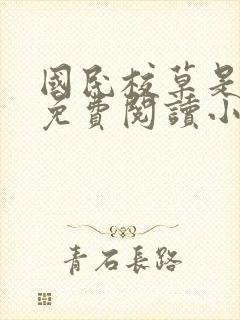 國民校草是
免費閱讀小
青石長路